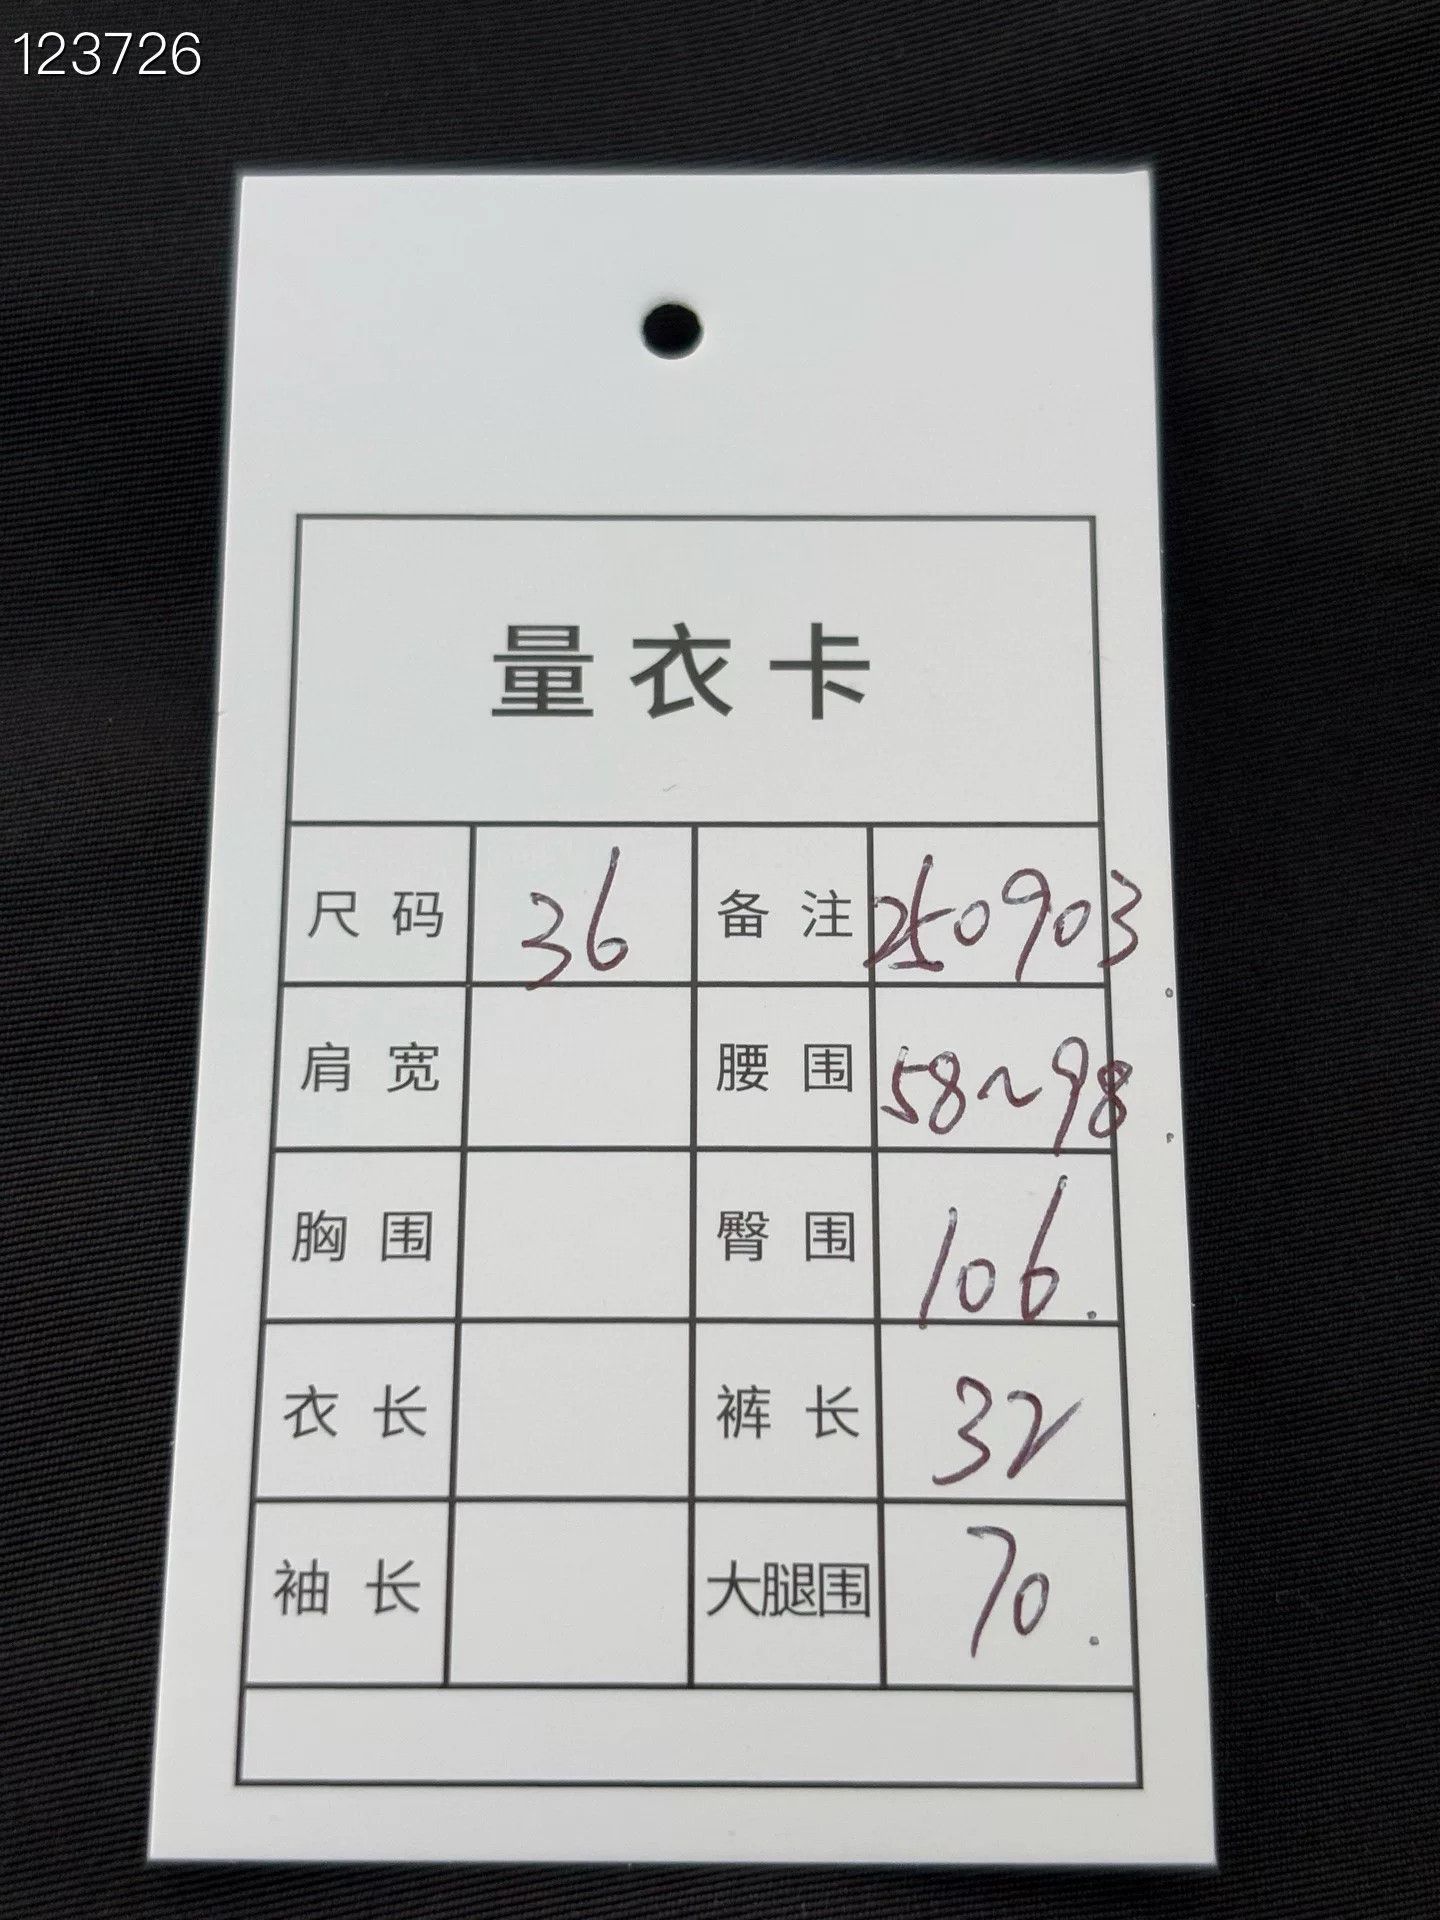 123726
量衣卡
尺码 36 备注 250903
肩宽 腰围 58~98
胸围 臀围 106.
衣长 裤长 32
袖长 大腿围 70.